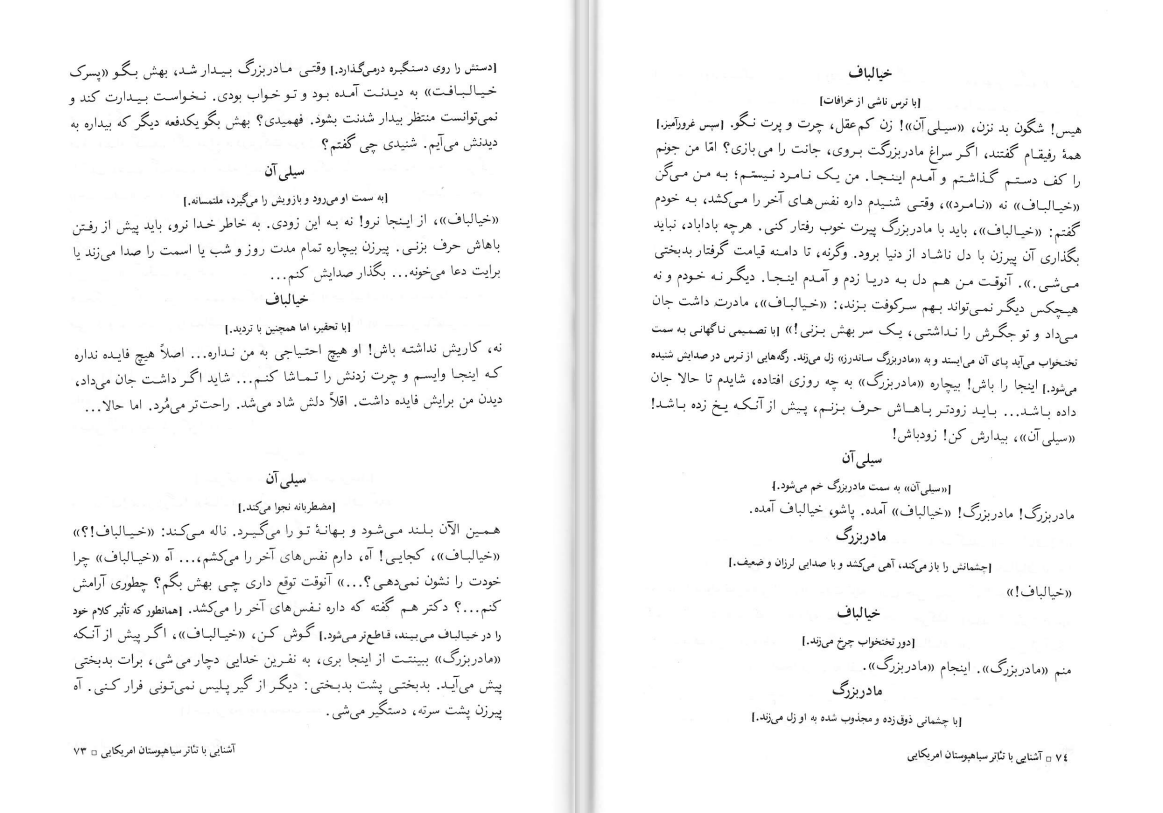 [دستش را روی دستگیره درمی‌گذارد.] وقتی مادربزرگ بیدار شد، بهش بگو «پسرک
خیالبافت» به دیدنت آمده بود و تو خواب بودی. نخواست بیدارت کند و
نمی‌توانست منتظر بیدار شدنت بشود. فهمیدی؟ بهش بگو یکدفعه دیگر که بیداره به
دیدنش می‌آیم. شنیدی چی گفتم؟
سیلی‌آن
[به سمت او می‌رود و بازویش را می‌گیرد، ملتمسانه.]
«خیالباف»، از اینجا نرو! نه به این زودی. به خاطر خدا نرو، باید پیش از رفتن
باهاش حرف بزنی. پیرزن بیچاره تمام مدت روز و شب یا اسمت را صدا می‌زند یا
برایت دعا می‌خونه... بگذار صدایش کنم...
خیالباف
[با تحقیر، اما همچنین با تردید.]
نه، کاریش نداشته باش! او هیچ احتیاجی به من نداره... اصلاً هیچ فایده نداره
که اینجا وایسم و چرت زدنش را تماشا کنم... شاید اگر داشت جان می‌داد،
دیدن من برایش فایده داشت. اقلاً دلش شاد می‌شد. راحت‌تر می‌مُرد. اما حالا...
سیلی‌آن
[مضطربانه نجوا می‌کند.]
همین الآن بلند می‌شود و بهانهٔ تو را می‌گیرد. ناله می‌کند: «خیالباف!؟»
«خیالباف»، کجایی! آه، دارم نفس‌های آخر را می‌کشم،... آه «خیالباف» چرا
خودت را نشون نمی‌دهی؟...» آنوقت توقع داری چی بهش بگم؟ چطوری آرامش
کنم...؟ دکتر هم گفته که داره نفس‌های آخر را می‌کشد. [همانطور که تأثیر کلام خود
را در خیالباف می‌بیند، قاطع‌تر می‌شود.] گوش کن، «خیالباف»، اگر پیش از آنکه
«مادربزرگ» ببینتت از اینجا بری، به نفرین خدایی دچار می‌شی، برات بدبختی
پیش می‌آید. بدبختی پشت بدبختی: دیگر از گیر پلیس نمی‌تونی فرار کنی. آه
پیرزن پشت سرته، دستگیر می‌شی.
آشنایی با تئاتر سیاهپوستان امریکایی □ ۷۳
خیالباف
[با ترس ناشی از خرافات]
هیس! شگون بد نزن، «سیلی‌آن»! زن کم‌عقل، چرت و پرت نگو. [سپس غرورآمیز.]
همهٔ رفیقام گفتند، اگر سراغ مادربزرگت بروی، جانت را می‌بازی؟ امّا من جونم
را کف دستم گذاشتم و آمدم اینجا. من یک نامرد نیستم؛ به من می‌گن
«خیالباف» نه «نامرد»، وقتی شنیدم داره نفس‌های آخر را می‌کشد، به خودم
گفتم: «خیالباف»، باید با مادربزرگ پیرت خوب رفتار کنی. هرچه باداباد، نباید
بگذاری آن پیرزن با دل ناشاد از دنیا برود. وگرنه، تا دامنه قیامت گرفتار بدبختی
می‌شی.». آنوقت من هم دل به دریا زدم و آمدم اینجا. دیگر نه خودم و نه
هیچکس دیگر نمی‌تواند بهم سرکوفت بزند،: «خیالباف»، مادرت داشت جان
می‌داد و تو جگرش را نداشتی، یک سر بهش بزنی!» [با تصمیمی ناگهانی به سمت
تختخواب می‌آید پای آن می‌ایستد و به «مادربزرگ ساندرز» زل می‌زند. رگه‌هایی از ترس در صدایش شنیده
می‌شود.] اینجا را باش! بیچاره «مادربزرگ» به چه روزی افتاده، شایدم تا حالا جان
داده باشد... باید زودتر باهاش حرف بزنم، پیش از آنکه یخ زده باشد!
«سیلی‌آن»، بیدارش کن! زودباش!
سیلی‌آن
[«سیلی‌آن» به سمت مادربزرگ خم می‌شود.]
مادربزرگ! مادربزرگ! «خیالباف» آمده. پاشو، خیالباف آمده.
مادربزرگ
[چشمانش را باز می‌کند، آهی می‌کشد و با صدایی لرزان و ضعیف.]
«خیالباف!»
خیالباف
[دور تختخواب چرخ می‌زند.]
منم «مادربزرگ». اینجام «مادربزرگ».
مادربزرگ
[با چشمانی ذوق‌زده و مجذوب شده به او زل می‌زند.]
۷۴ □ آشنایی با تئاتر سیاهپوستان امریکایی